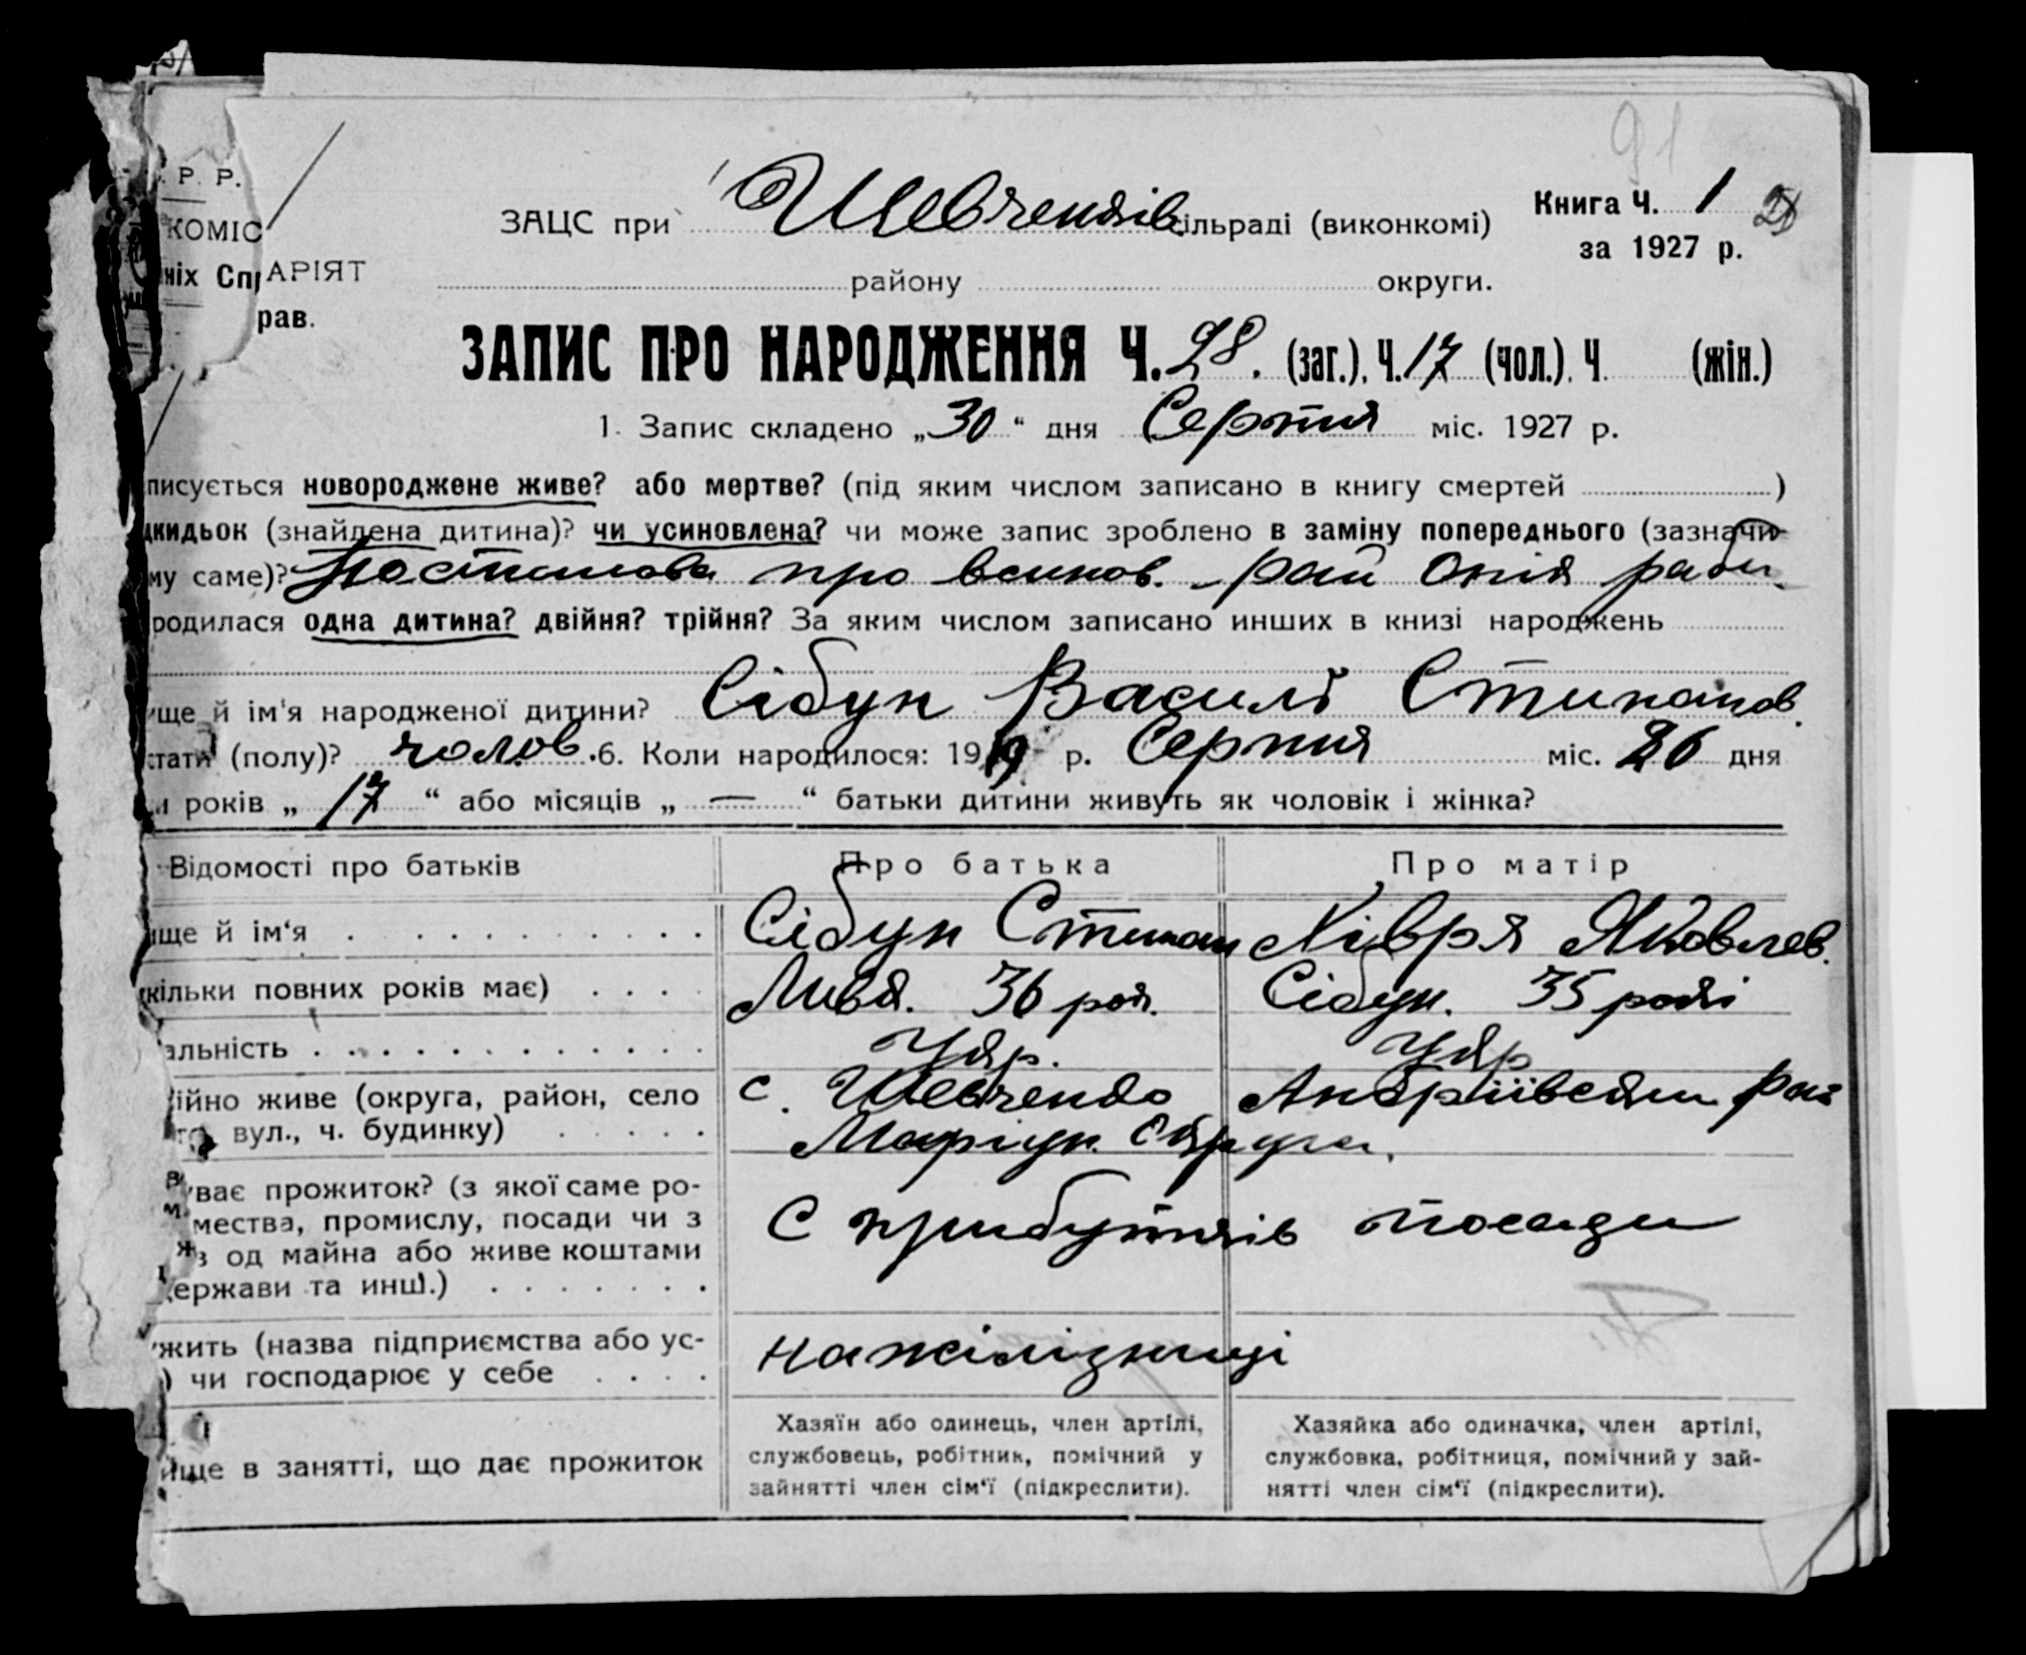 91
. Р. Р.
КОМІС
АРІЯТ
ніх Спр
рав.
ЗАЦС при Шевченків сільраді (виконкомі)
Книга Ч. 1
за 1927 р.
району округи.
ЗАПИС ПРО НАРОДЖЕННЯ Ч. 28. (заг.), Ч. 17 (чол.), Ч. (жін.)
1. Запис складено „30“ дня Серпня міс. 1927 р.
писується новороджене живе? або мертве? (під яким числом записано в книгу смертей )
дкидьок (знайдена дитина)? чи усиновлена? чи може запис зроблено в заміну попереднього (зазначи
му саме)? Постанова про всинов. рай Опік ради
родилася одна дитина? двійня? трійня? За яким числом записано инших в книзі народжень
ище й ім'я народженої дитини? Сібун Василь Стипанов.
стати (полу)? чолов. 6. Коли народилося: 1919 р. Серпня міс. 26 дня
и років „17“ або місяців „—“ батьки дитини живуть як чоловік і жінка?
Відомості про батьків Про батька Про матір
ище й ім'я Сібун Стипан Хівря Яковлев.
кільки повних років має) 36 рок. Сібун. 35 роки
альність Укр. Укр
ійно живе (округа, район, село с. Шевченко Андріївским рай
вул., ч. будинку) Маріуп. Округи.
ває прожиток? (з якої саме ро-
мества, промислу, посади чи з С прибутків посади
з од майна або живе коштами
держави та инш.)
ужить (назва підприємства або ус- на жілізниці
) чи господарює у себе
Хазяїн або одинець, член артілі, Хазяйка або одиначка, член артілі,
службовець, робітник, помічний у службовка, робітниця, помічний у зай-
ище в занятті, що дає прожиток
зайнятті член сім'ї (підкреслити). нятті член сім'ї (підкреслити).